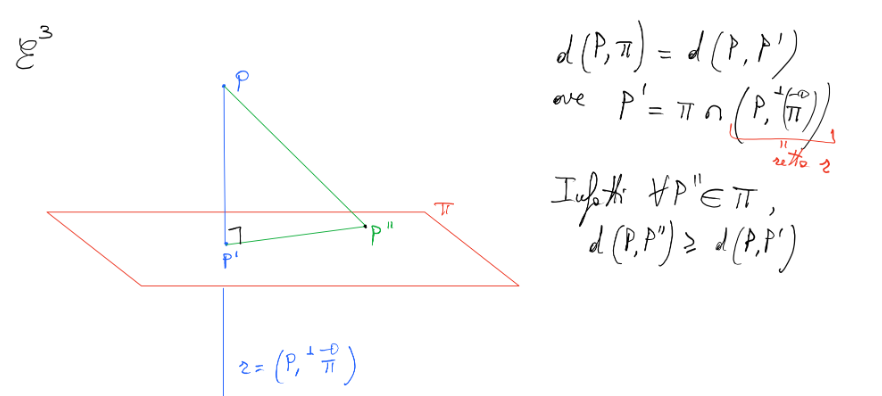 ℰ³
P
π
P'
P"
r = (P, ⊥π⃗)
d(P, π) = d(P, P')
ove P' = π ∩ (P, ⊥(π⃗))
"
retta r
Infatti ∀P" ∈ π,
d(P, P") ≥ d(P, P')